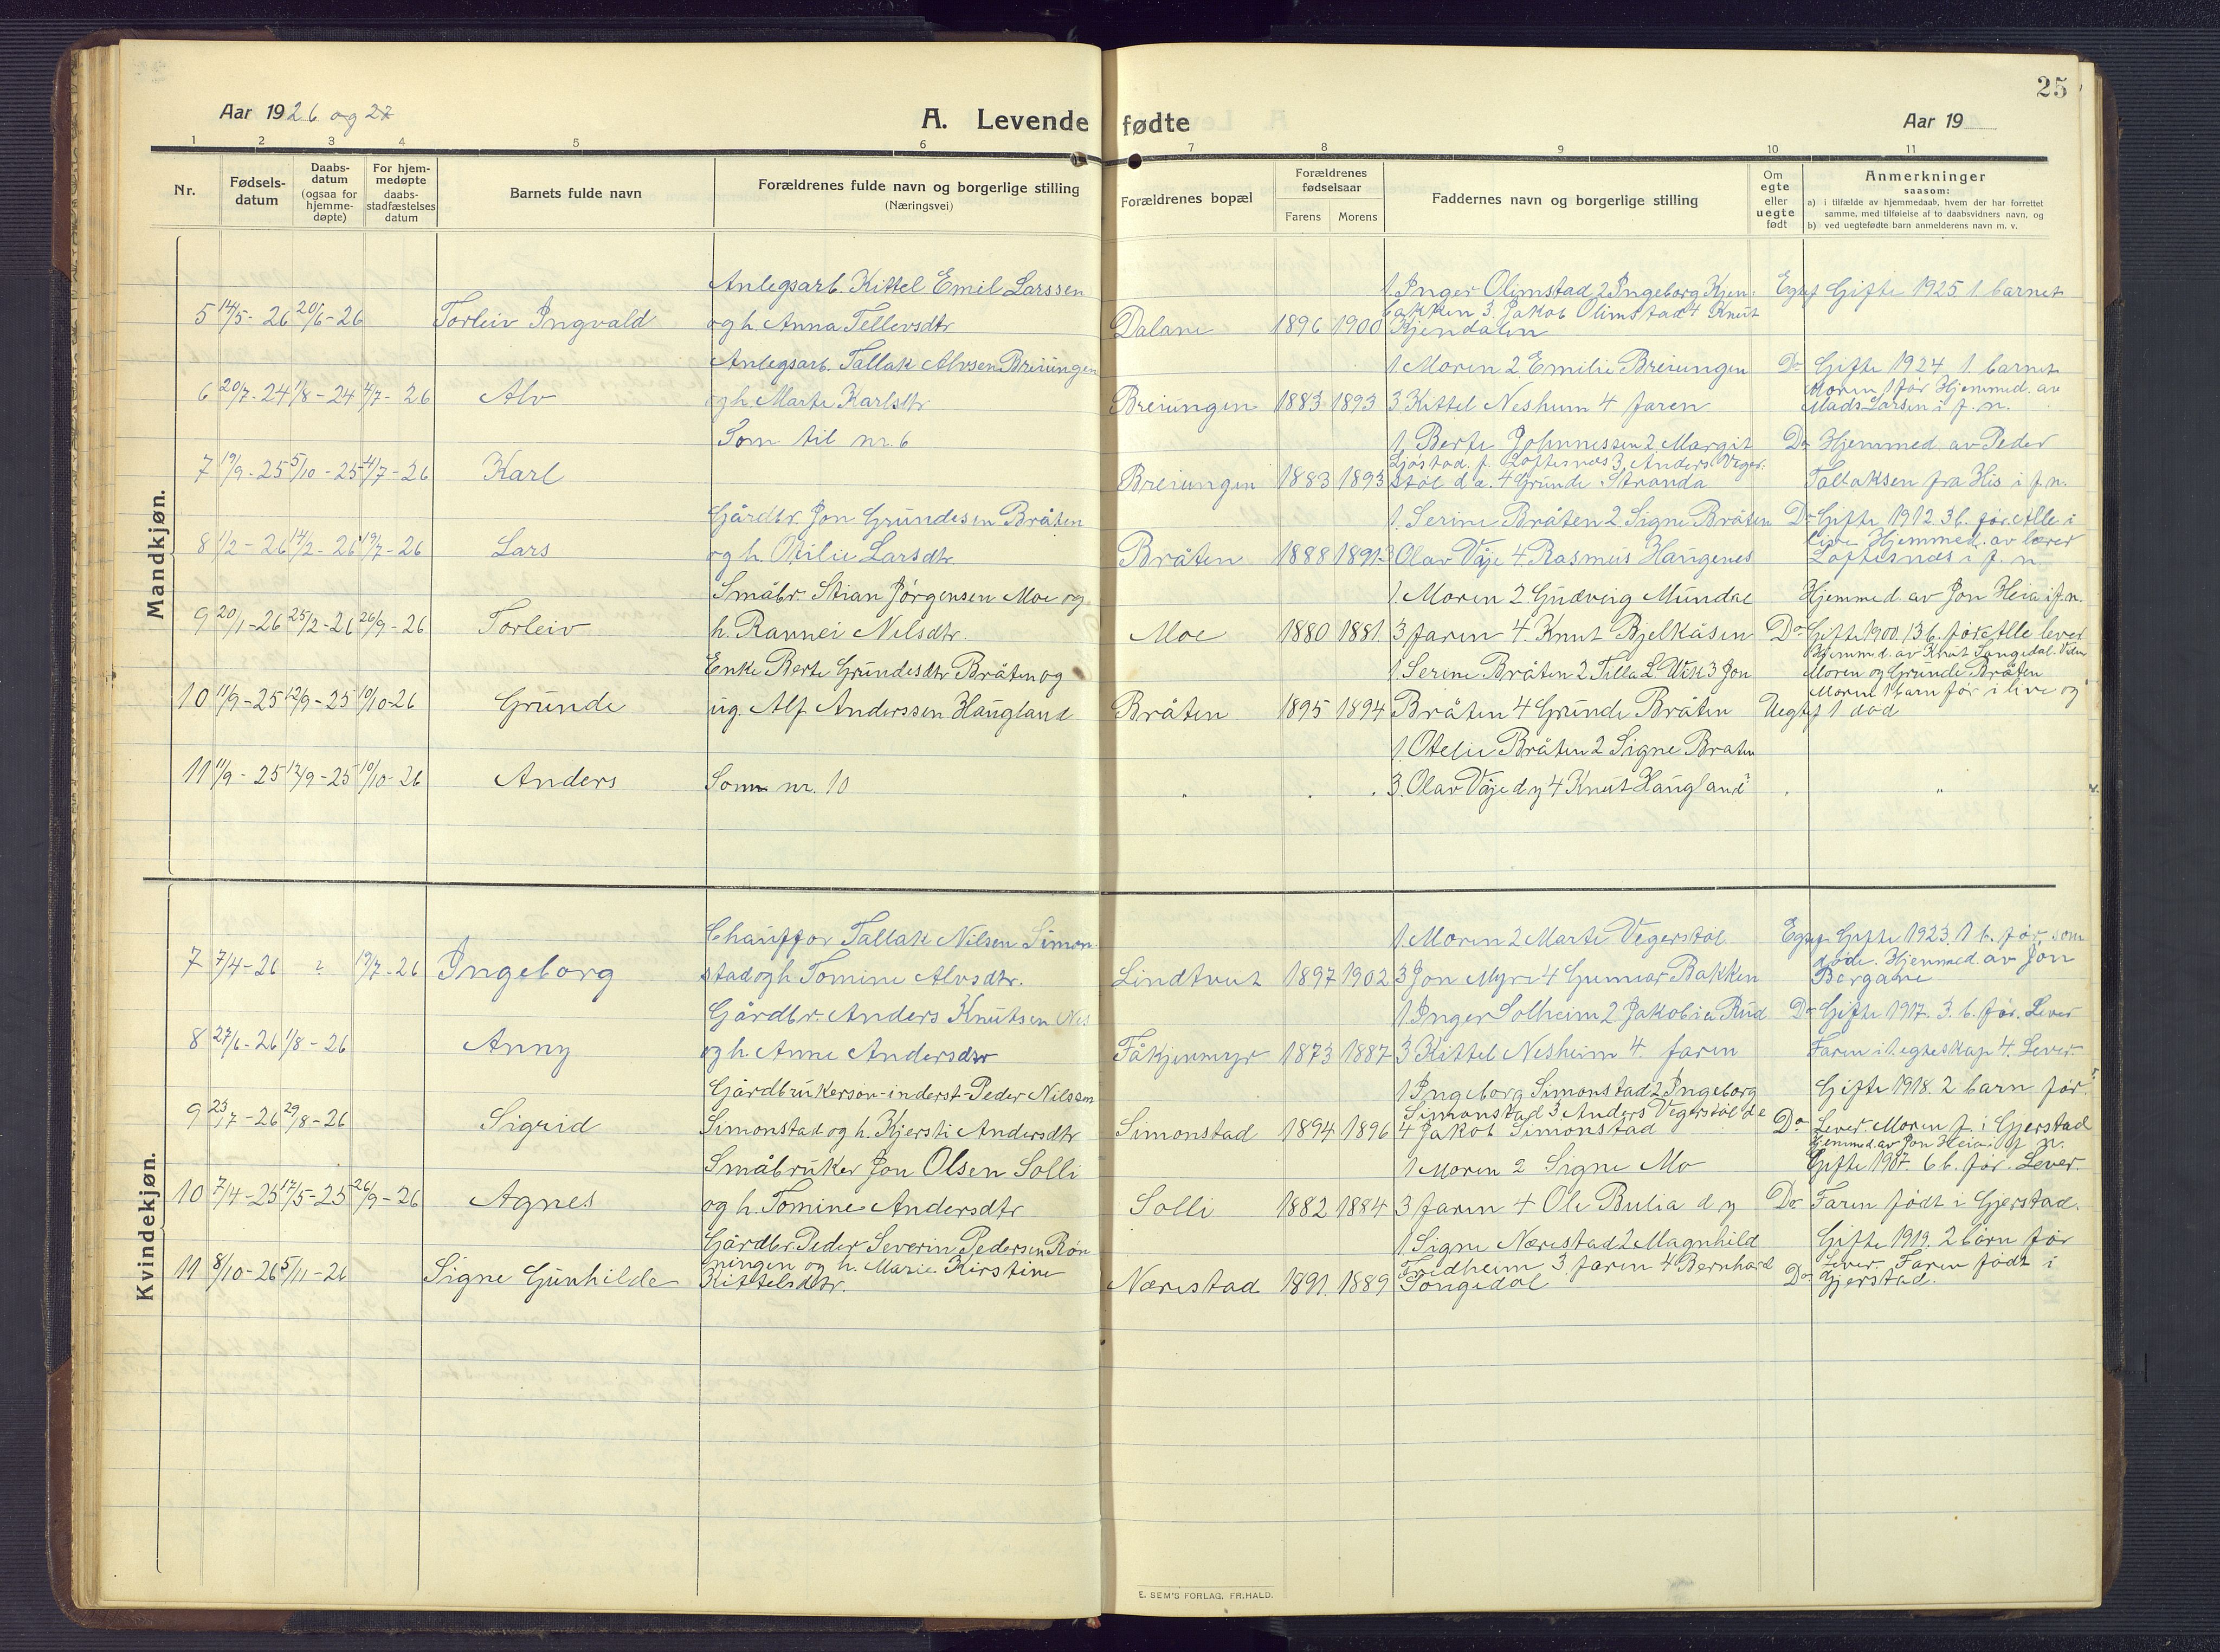 25
Aar 1926 og 27
A. Levende fødte
Aar 19
1 2 3 4 5 6 7 8 9 10 11
Nr.
Fødsels-
datum
Daabs-
datum
(ogsaa for
hjemme-
døpte)
For hjem-
medøpte
daabs-
stadfæstelses
datum
Barnets fulde navn
Forældrenes fulde navn og borgerlige stilling
(Næringsvei)
Forældrenes bopæl
Forældrenes
fødselsaar
Farens Morens
Faddernes navn og borgerlige stilling
Om
egte
eller
uegte
født
Anmerkninger
saasom:
a) i tilfælde av hjemmedaab, hvem der har forrettet
samme, med tilføielse af to daabsvidners navn, og
b) ved uegtefødte barn anmelderens navn m. v.
Mandkjøn.
Anlegsarb. Kittel Emil Larssen
5 14/5-26 20/6-26 Torleiv Ingvald
og h. Anna Tellevsdtr
Dalane 1896 1900
1 Inger Olimstad 2 Ingeborg Kjen-
bakken 3. Jakob Olimstad 4 Knut
Kjendalen
Egtef Gifte 1925. 1. barnet
Anlegsarb. Tallak Alvsen Breiungen
6 20/7-24 1/8-24 4/7-26 Alv
og h. Marte Karlsdtr
Breiungen 1883 1893
1 Moren 2 Emilie Breiungen
3 Kittel Neshum 4 faren
Do Gifte 1924 1 barnet
Moren 1 før Hjemmed. av
Mads Larsen i f. n.
Som til nr. 6
7 19/9-25 5/10-25 4/7-26 Karl
Breiungen 1883 1893
1. Berte Johnnessen 2 Margit
Sjøstad. f. Løftesnæs 3. Anders Veger-
støl d.æ. 4 Grunde Stranda
Do Hjemmed av Peder
Tallaksen fra His i f. n.
Gårdbr. Jon Grundesen Bråten
8 1/2-26 14/2-26 19/7-26 Lars
og h. Otilie Larsdtr.
Bråten 1888 1891
1. Serine Bråten 2. Signe Bråten
3 Olav Våje 4 Rasmus Haugenes
Do Gifte 1912. 3 b. før. Alle i
live. Hjemmed. av lærer
Løftesnæs i f. n
Småbr. Stian Jørgensen Moe og
9 20/1-26 25/2-26 26/9-26 Torleiv
h. Rannei Nilsdtr.
Moe 1880 1881
1. Moren 2. Gudveig Mundal
3 faren 4. Knut Bjelkåsen
Hjemmed. av Jon Heia i f. n.
Do Gifte 1900. 13 b. før. Alle lever
Enke Berte Grundesdtr Bråten og
10 11/9-25 12/9-25 10/10-26 Grunde
ug. Alf Anderssen Haugland
Bråten 1895 1894
1 Serine Bråten 2 Tilla L. Vik 3 Jon
Bråten 4 Grunde Bråten
Hjemmed. av Knut Songedal. Vidn
Moren og Grunde Bråten
Moren 1 barn før i live og
Uegtef 1 død
11 11/9-25 12/9-25 10/10-26 Anders
Som nr. 10
1. Otelie Bråten 2 Signe Braten
3. Olav Våje d y 4 Knut Haugland
Kvindekjøn.
Chauffør Tallak Nilsen Simon-
7 7/4-26 ? 19/7-26 Ingeborg
stad og h. Tomine Alvsdtr.
Lindtveit 1897 1902
1. Moren 2 Marte Vegerstøl
3 Jon Myre 4 Gunnar Bakken
Egtef. Gifte 1923. 1 b. før, som
døde. Hjemmed. av Jon
Bergane
Gårdbr. Anders Knutsen Nes
8 27/6-26 1/8-26 Anny
og h. Anne Andersdtr
Fåkjenmyr 1873 1887
1 Inger Solheim 2 Jakobia Rud
3 Kittel Nesheim 4. faren
Do Gifte 1917. 3. b. før. Lever
Faren i 1. egteskap 4. Lever.
Gårdbrukersøn-inderst Peder Nilssen
9 23/7-26 29/8-26 Sigrid
Simonstad og h. Kjersti Andersdtr
Simonstad 1894 1896
1 Ingeborg Simonstad 2 Ingeborg
Simonstad 3 Anders Vegerstøl d e
4 Jakob Simonstad
Gifte 1918. 2 barn før.
Do Lever. Moren f. i Gjerstad
Småbruker Jon Olsen Solli
10 7/4-25 17/5-25 26/9-26 Agnes
og h. Tomine Andersdtr
Solli 1882 1884
1 Moren 2 Signe Mo
3 faren 4 Ole Bulia d y
Hjemmed. av Jon Heia i f. n.
Gifte 1907. 6 b. før. Lever.
Do Faren født i Gjerstad.
Gårdbr. Peder Severin Pedersen Røn
11 8/10-26 5/11-26 Signe Gunhilde
ningen og h. Marie Kirstine
Kittelsdtr.
Nærestad 1891 1889
1. Signe Nærestad 2 Magnhild
Fredheim 3 faren 4 Bernhard
Songedal
Gifte 1919. 2 barn før
Lever. Faren født i
Do Gjerstad.
E. SEM'S FORLAG, FR.HALD.